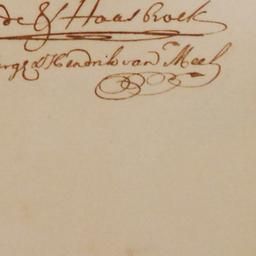 de & Haasbroek
Hendrik van Meel